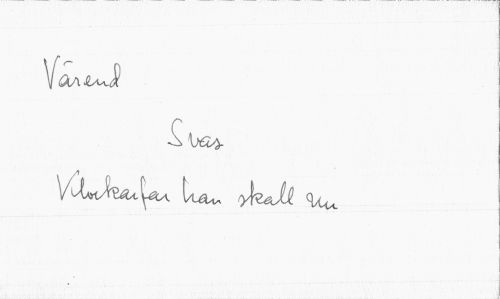 Värend
Svas
Klockarfar han skall nu